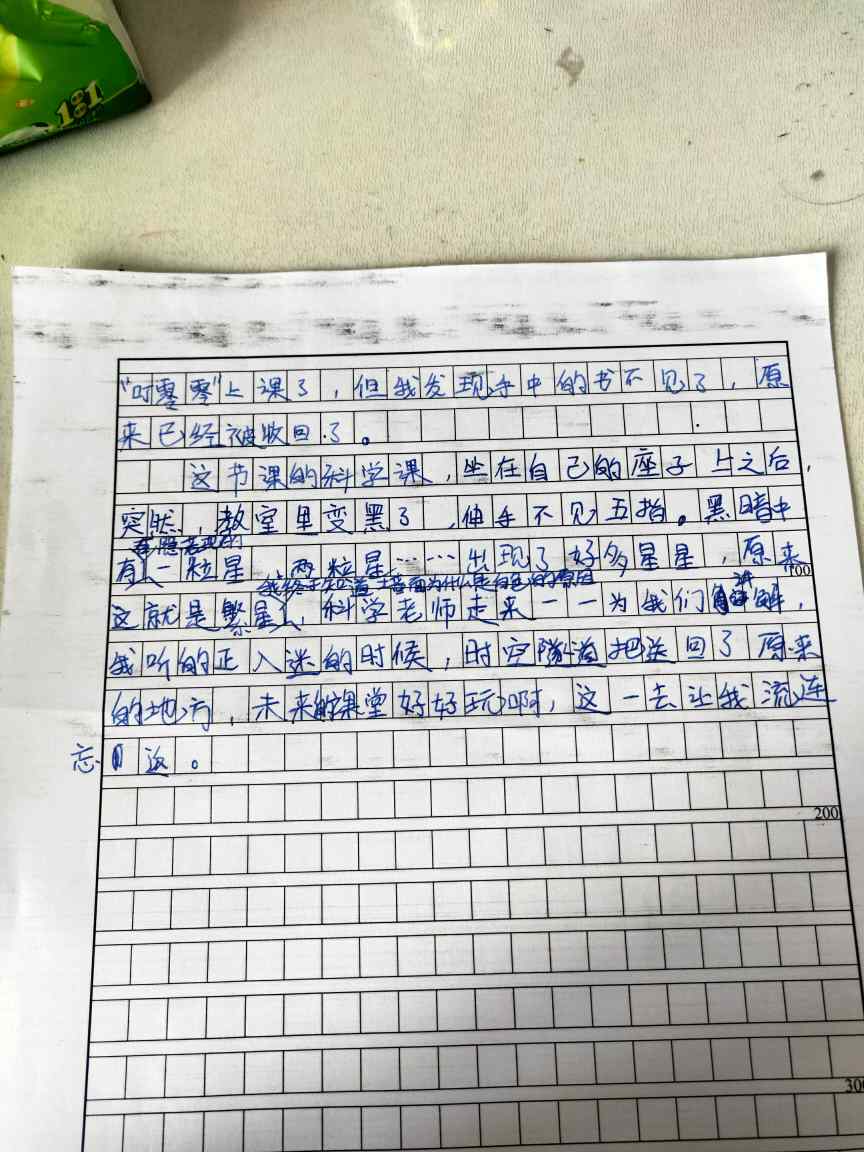 1百1
"叮零零"上课了，但我发现手中的书不见了，原
来已经被收回了。
这节课的科学课，坐在自己的座子上之后，
突然，教室里变黑了，伸手不见五指。黑暗中
若隐若现的
有一粒星，两粒星……出现了好多星星，原来
100
我终于知道
这就是繁星，科学老师走来一一为我们讲解，
我听的正入迷的时候，时空隧道把送回了原来
的地方，未来的课堂好好玩啊，这一去让我流连
忘返。
200
300